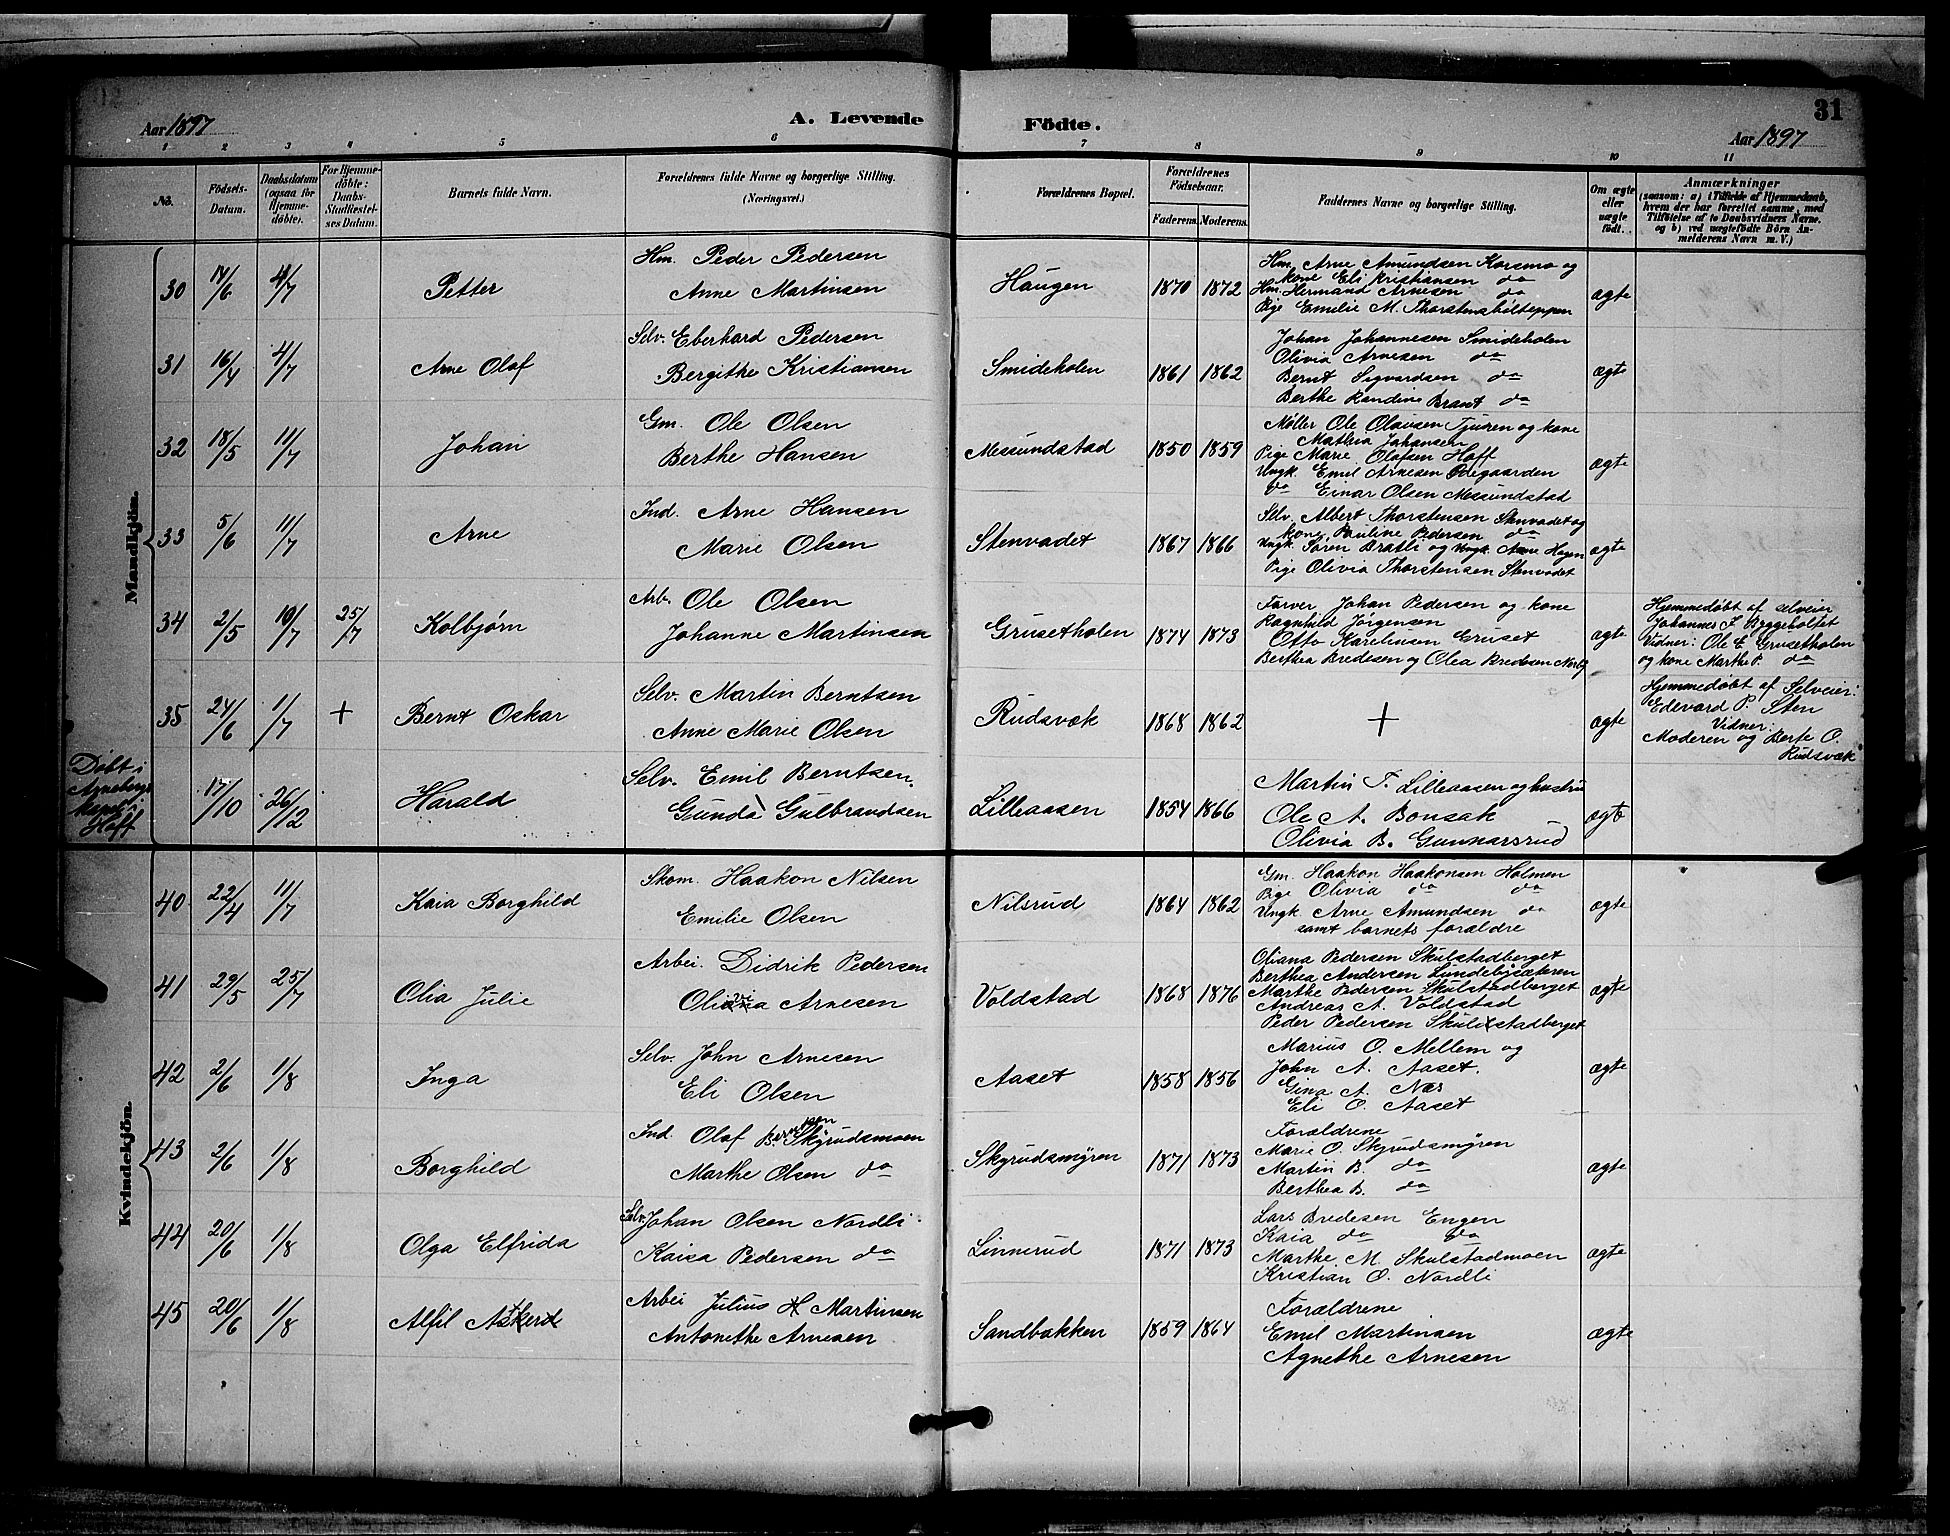 31
Aar 1897
A. Levende Födte.
Aar 1897
1 2 3 4 5 6 7 8 9 10 11
No.
Födsels-Datum.
Daabsdatum (ogsaa for Hjemme-döbte).
For Hjemme-döbte: Daabs-Stadfæstel-ses Datum.
Barnets fulde Navn.
Forældrenes fulde Navne og borgerlige Stilling.
(Næringsvei.)
Forældrenes Bopæl.
Forældrenes Födselsaar.
Faderens. Moderens.
Faddernes Navne og borgerlige Stilling.
Om ægte eller uægte födt.
Anmærkninger
(saasom: a) i Tilfælde af Hjemmedaab,
hvem der har forrettet samme, med
Tilföielse af to Daabsvidners Navne.
og b) ved uægtefödte Börn An-
melderens Navn m. V.)
Mandkjön.
30 14/6 4/7 Petter
Hm. Peder Pedersen
Anne Martinsen
Haugen 1870 1872
Hm. Arne Amundsen Korsmo og
kone Eli Kristiansen do
Hm. Hermand Arnesen do
Pige Emilie M. Thorstensbölteppen
ægte
31 16/4 4/7 Arne Olaf
Selv. Eberhard Pedersen
Bergithe Kristiansen
Smideholen 1861 1862
Johan Johannesen Smideholen
Olivia Arnesen do
Bernt Sigvardsen do
Berthe Randine Brant do
ægte
32 18/5 11/7 Johan
Gm. Ole Olsen
Berthe Hansen
Messundstad 1850 1859
Møller Ole Olausen Tjuren og kone
Mathea Johansen
Pige Marie Olafsen Hoff
Ungk. Emil Arnesen Ødegaarden
do Einar Olsen Messundstad
ægte
33 5/6 11/7 Arne
Ind. Arne Hansen
Marie Olsen
Stenvadet 1867 1866
Selv. Albert Thorstensen Stenvadet og
kone Pauline Pedersen do
Ungk. Søren Bratli og Ungk. Arne Hagen
Pige Olivia Thorstensen Stenvadet
ægte
34 2/5 10/7 25/7 Kolbjørn
Arb. Ole Olsen
Johanne Martinsen
Grusetholen 1874 1873
Farver Johan Pedersen og kone
Ragnhild Jørgensen
Otto Karelinson Gruset
Berthea Bredesen og Olea Bredesen
ægte
Hjemmedøbt af selveier
Johannes F. Byggeholtet
Vidner: Ole E. Grusetholen
og kone Marthe P. do
35 24/6 1/7 + Bernt Oskar
Selv. Martin Berntsen
Anne Marie Olsen
Rudsvæk 1868 1862
+
ægte
Hjemmedøbt af Selveier:
Edevard P. Sten
Vidner:
Moderen og Berte O.
Rudsvæk
Døbt i
Hoff
17/10 26/12 Harald
Selv. Emil Berntsen.
Gunda Gulbrandsen
Lilleaasen 1854 1866
Martin F. Lilleaasen og hustru
Ole A. Bonsak
Olivia B. Gunnarsrud
ægte
Kvindekjön.
40 22/4 11/7 Kaia Borghild
Skom. Haakon Nilsen
Emilie Olsen
Nilsrud 1864 1862
Gm. Haakon Haakonsen Holmen
Pige Olivia do do
Ungk. Arne Amundsen do
samt barnets forældre
ægte
41 29/5 25/7 Olia Julie
Arbei. Didrik Pedersen
Olivia Arnesen
Voldstad 1868 1876
Oliana Pedersen Skulstadberget
Berthea Andersen Lundebysæteren
Marthe Pedersen Skulstadberget
Andreas A. Voldstad
Peder Pedersen Skulstadberget
ægte
42 2/6 1/8 Inga
Selv. John Arnesen
Eli Olsen
Aaset 1858 1856
Marius O. Mellem og
John A. Aaset.
Gina A. Næs
Eli O. Aaset
ægte
43 2/6 1/8 Borghild
Ind. Olaf Berntsen Skyrudsmoen
Marthe Olsen do
Skyrudsmyren 1871 1873
Forældrene
Marie O. Skyrudsmyren
Martin B. do
Berthea B. do
ægte
44 20/6 1/8 Olga Elfrida
Selv. Johan Olsen Nordli
Kaisa Pedersen do
Linnerud 1871 1873
Lars Bredesen Engen
Kaia do do
Marthe M. Skulstadmoen
Kristian O. Nordli
ægte
45 20/6 1/8 Alfil
Arbei Julius H Martinsen
Antonethe Arnesen
Sandbakken 1859 1864
Forældrene
Emil Martinsen
Agnethe Arnesen
ægte